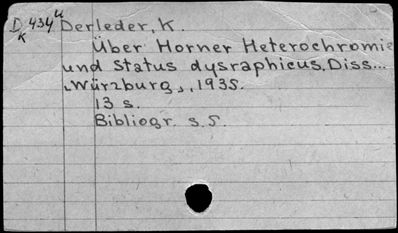 D 434 u Derleder, K.
K
Über Horner Heterochromie
und Status dysraphicus. Diss...
Würzburg, 1935.
13 s.
Bibliogr. s. 5.